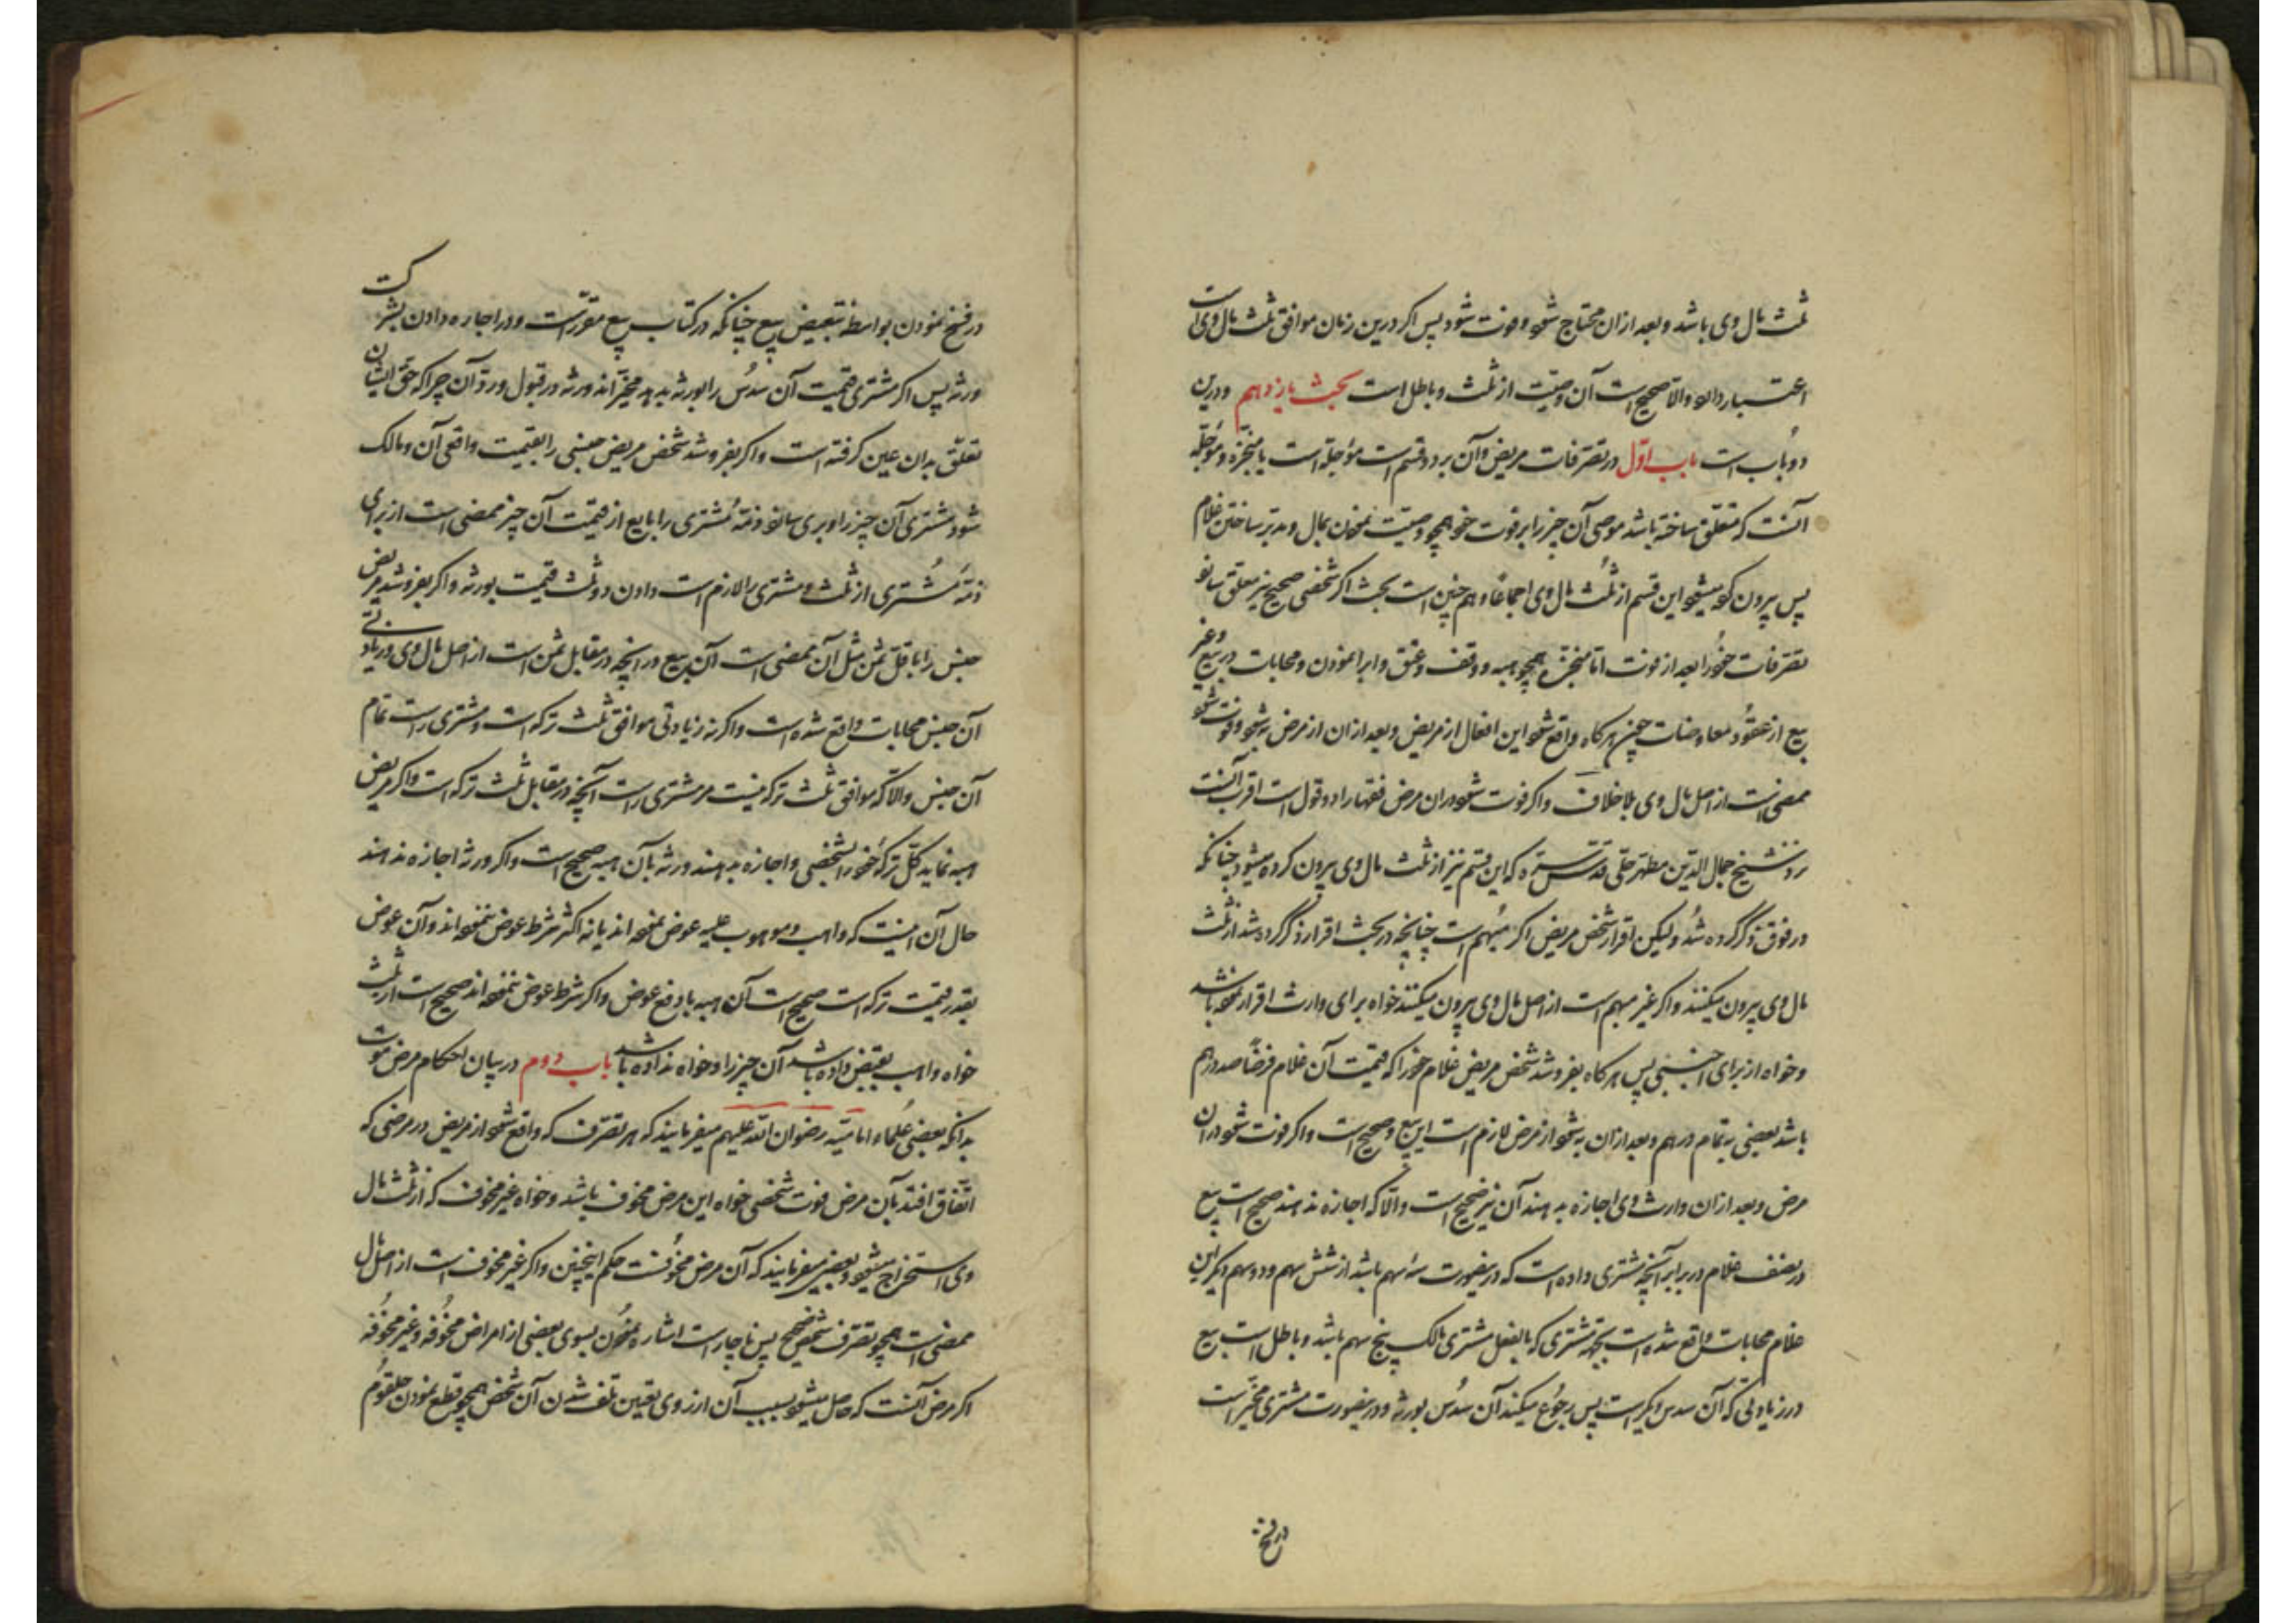 ثلث مال وی باشد و بعد ازان محتاج شود و فوت شود پس اکر درین زمان موافق ثلث مال وی است
اعتبار دارد والا صحیح است آن وصیت از ثلث و باطل است بحث یازدهم و درین
دو باب است باب اول در تصرفات مریض و آن بر دو قسم است مؤجله است یا منجزه و مؤجله
آنست که متعلق ساخته باشد موصی آن چیز را بر فوت خود همچو وصیت نمودن بمال و مدبر ساختن غلام
پس بیرون کرده میشود این قسم از ثلث مال وی اجماعا و هم چنین است بحث اکر شخصی صحیح نیز معلق سازد
تصرفات خود را بعد از فوت اما منجزه همچو هبه و وقف و عتق و ابرا نمودن و محابات در بیع و غیر
بیع از عقود معاوضات چنین هرکاه واقع شود این افعال از مریض و بعد ازان از مرض به شود و فوت شود
ممضی است از اصل مال وی بلا خلاف و اکر فوت شود دران مرض فقها را دو قول است اقرب آنست
نزد شیخ جمال الدین مطهر حلی قدس سره که این قسم نیز از ثلث مال وی بیرون کرده میشود چنانکه
در فوق ذکر کرده شد و لیکن اقرار شخص مریض اکر مبهم است چنانچه در بحث اقرار ذکر کرده شد از ثلث
مال وی بیرون میکنند و اکر غیر مبهم است از اصل مال وی بیرون میکنند خواه برای وارث اقرار نموده باشد
و خواه از برای اجنبی پس هرکاه بفروشد شخص مریض غلام خود را که قیمت آن غلام فرضا صد درهم
باشد بعضی به تمام درهم و بعد ازان به شود از مرض لازم است این بیع و صحیح است و اکر فوت شود دران
مرض و بعد ازان وارث وی اجازه بدهند آن نیز صحیح است والا که اجازه ندهند صحیح است بیع
در نصف غلام در برابر آنچه مشتری داده است که درینصورت سه سهم باشد از شش سهم و دو سهم دیکر این
غلام محابات واقع شده است بجهة مشتری که بالفعل مشتری مالک پنج سهم باشد و باطل است بیع
در زیادتی که آن سدس اکبر است پس رجوع میکند آن سدس بورثه و درینصورت مشتری مخیر است
در فسخ
در فسخ نمودن بواسطه تبعیض بیع چنانکه در کتاب بیع مقرر است و در اجازه دادن بشرکت
ورثه پس اکر مشتری قیمت آن سدس را بورثه بدهد مخیر اند ورثه در قبول و رد آن چرا که حق ایشان
تعلق بدان عین کرفته است و اکر بفروشد شخص مریض جنسی را بقیمت واقعی آن و مالک
شود مشتری آن چیز را و بری سازد ذمه مشتری را بایع از قیمت آن چیز ممضی است از برای
ذمه مشتری از ثلث و مشتری را لازم است دادن دو ثلث قیمت بورثه و اکر بفروشد مریض
جنس را باقل ثمن مثل آن ممضی است آن بیع در آنچه در مقابل ثمن است از اصل مال وی و زیادتی
آن جنس محابات واقع شده است و اکر نه زیادتی موافق ثلث ترکه است و مشتری راست تمام
آن جنس والا که موافق ثلث ترکه نیست مر مشتری راست آنچه در مقابل ثلث ترکه است و اکر مریض
هبه نماید کل ترکه خود را بشخصی و اجازه بدهند ورثه بآن هبه صحیح است و اکر ورثه اجازه ندهند
حال آن اینست که واهب و موهوب علیه عوض نموده اند یا نه اکثر شرط عوض ننموده اند و آن عوض
بقدر قیمت ترکه است صحیح است آن هبه با دفع عوض و اکر شرط عوض ننموده اند صحیح است از ثلث
خواه واهب بقبض داده باشد آن چیز را و خواه نداده باشد باب دوم در بیان احکام مرض موت
بدانکه بعضی علماء امامیه رضوان الله علیهم میفرمایند که هر تصرف که واقع شود از مریض در مرضی که
اتفاق افتد بآن مرض فوت شخصی خواه این مرض مخوف باشد و خواه غیر مخوف که از ثلث مال
وی استخراج میشود و بعضی میفرمایند که آن مرض مخوفست حکم اینچنین و اکر غیر مخوف است از اصل مال
ممضی است همچو تصرف شخص صحیح پس ناچار است اشاره نمودن بسوی بعضی از امراض مخوفه و غیر مخوفه
اکر مرض آنست که حاصل میشود بسبب آن از روی یقین تلف شدن آن شخص همچو قطع نمودن حلقوم